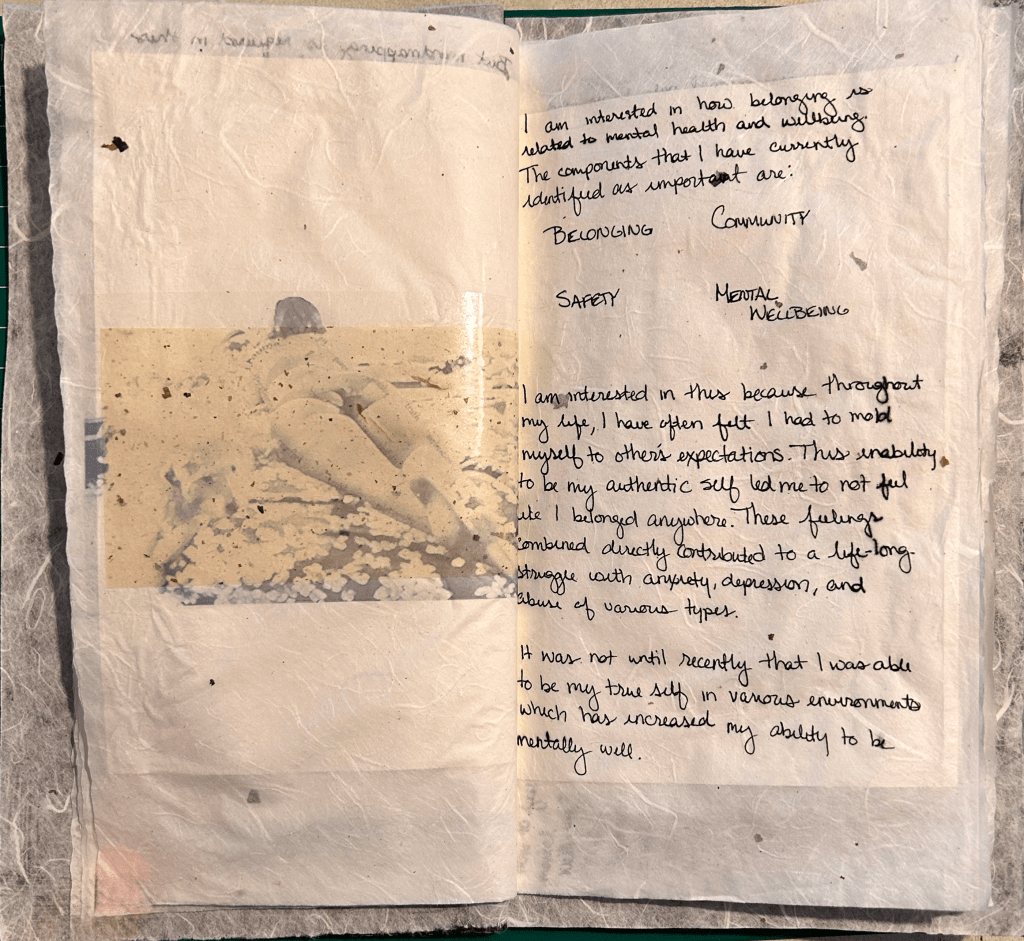 But mindmapping is required in this
I am interested in how belonging is
related to mental health and wellbeing.
The components that I have currently
identified as important are:
BELONGING COMMUNITY
SAFETY MENTAL
WELLBEING
I am interested in this because throughout
my life, I have often felt I had to mold
myself to other's expectations. This inability
to be my authentic self led me to not feel
like I belonged anywhere. These feelings
combined directly contributed to a life-long
struggle with anxiety, depression, and
abuse of various types.
It was not until recently that I was able
to be my true self in various environments
which has increased my ability to be
mentally well.